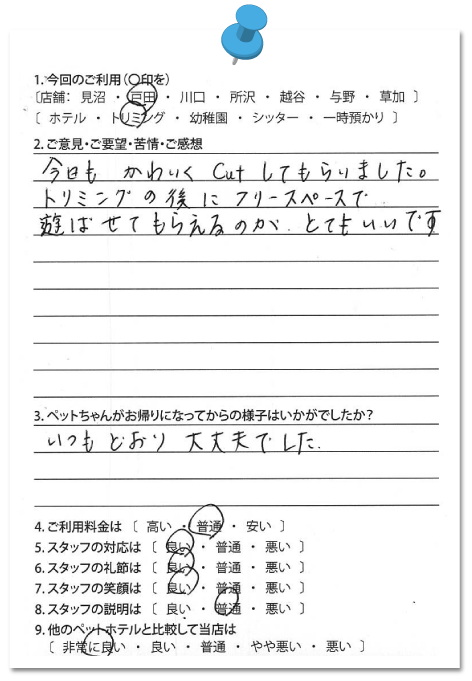 1.今回のご利用(○印を)
〔店舗： 見沼 ・ 戸田 ・ 川口 ・ 所沢 ・ 越谷 ・ 与野 ・ 草加 〕
〔 ホテル ・ トリミング ・ 幼稚園 ・ シッター ・ 一時預かり 〕
2.ご意見・ご要望・苦情・ご感想
今日も かわいく Cut してもらいました。
トリミングの後に フリースペースで
遊ばせてもらえるのが、とてもいいです
3.ペットちゃんがお帰りになってからの様子はいかがでしたか？
いつもどおり 大丈夫でした.
4.ご利用料金は 〔 高い ・ 普通 ・ 安い 〕
5.スタッフの対応は 〔 良い ・ 普通 ・ 悪い 〕
6.スタッフの礼節は 〔 良い ・ 普通 ・ 悪い 〕
7.スタッフの笑顔は 〔 良い ・ 普通 ・ 悪い 〕
8.スタッフの説明は 〔 良い ・ 普通 ・ 悪い 〕
9.他のペットホテルと比較して当店は
〔 非常に良い ・ 良い ・ 普通 ・ やや悪い ・ 悪い 〕